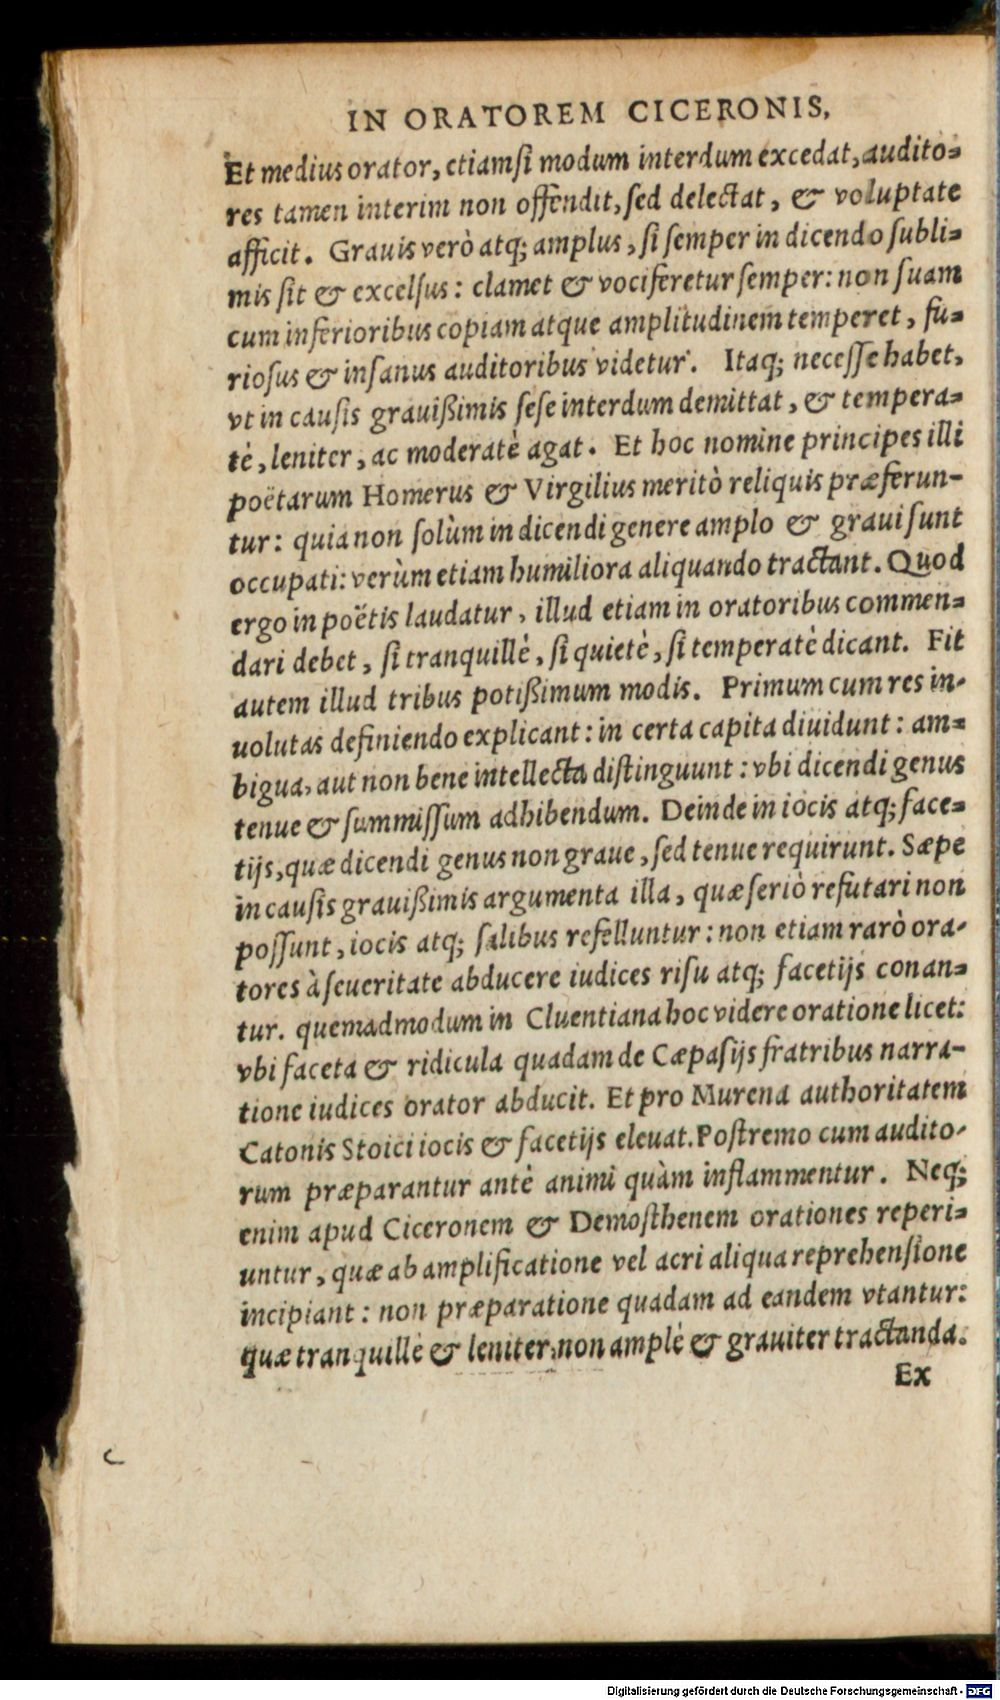 IN ORATOREM CICERONIS,
Et medius orator, etiamsi modum interdum excedat, audito-
res tamen interim non offendit, sed delectat, & voluptate
afficit. Grauis verò atq; amplus, si semper in dicendo subli-
mis sit & excelsus: clamet & vociferetur semper: non suam
cum inferioribus copiam atque amplitudinem temperet, fu-
riosus & insanus auditoribus videtur. Itaq; necesse habet,
vt in causis grauißimis sese interdum demittat, & tempera-
tè, leniter, ac moderatè agat. Et hoc nomine principes illi
poëtarum Homerus & Virgilius meritò reliquis præferun-
tur: quia non solùm in dicendi genere amplo & graui sunt
occupati: verùm etiam humiliora aliquando tractant. Quod
ergo in poëtis laudatur, illud etiam in oratoribus commen-
dari debet, si tranquillè, si quietè, si temperatè dicant. Fit
autem illud tribus potißimum modis. Primum cum res in-
uolutas definiendo explicant: in certa capita diuidunt: am-
bigua, aut non bene intellecta distinguunt: vbi dicendi genus
tenue & summissum adhibendum. Deinde in iocis atq; face-
tijs, quæ dicendi genus non graue, sed tenue requirunt. Sæpe
in causis grauißimis argumenta illa, quæ seriò refutari non
possunt, iocis atq; salibus refelluntur: non etiam rarò ora-
tores à seueritate abducere iudices risu atq; facetijs conan-
tur. quemadmodum in Cluentiana hoc videre oratione licet:
vbi faceta & ridicula quadam de Cæpasijs fratribus narra-
tione iudices orator abducit. Et pro Murena authoritatem
Catonis Stoici iocis & facetijs eleuat. Postremo cum audito-
rum præparantur antè animi quàm inflammentur. Neq;
enim apud Ciceronem & Demosthenem orationes reperi-
untur, quæ ab amplificatione vel acri aliqua reprehensione
incipiant: non præparatione quadam ad eandem vtantur:
quæ tranquillè & leniter, non amplè & grauiter tractanda.
Ex
Digitalisierung gefördert durch die Deutsche Forschungsgemeinschaft - DFG